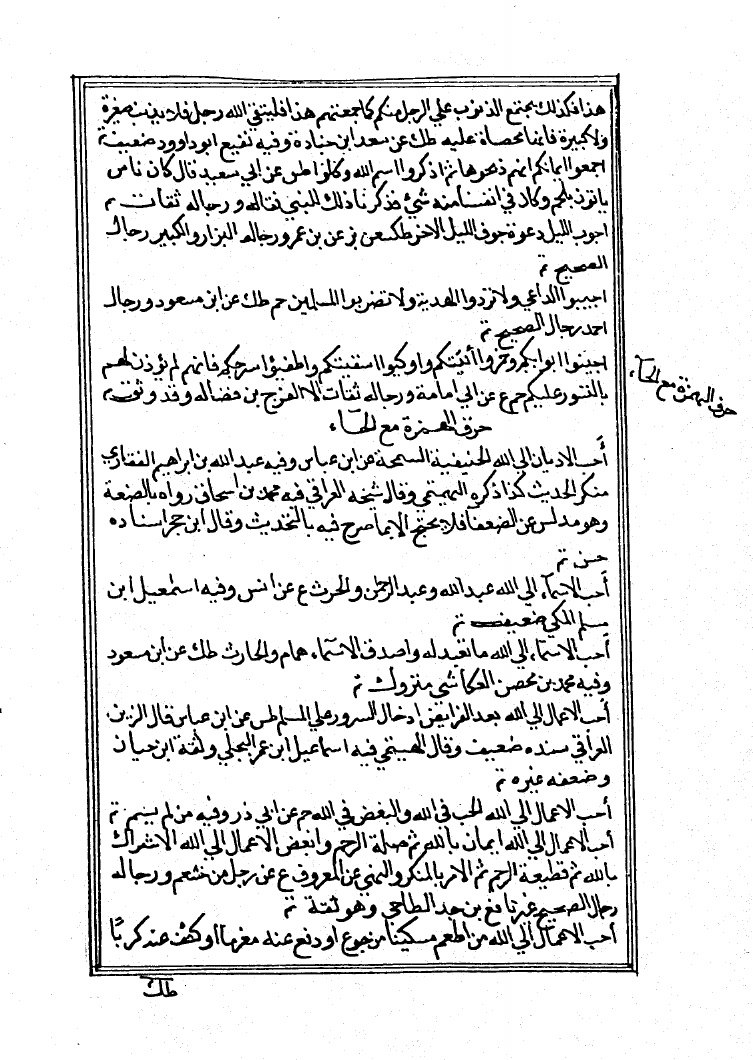 هذا فكذلك يجتمع الذنوب علي الرجل منكم كما جمعتم هذا فليتقي الله رجل فلا يذنب صغيرة
ولا كبيرة فانها محصاة عليه طك عن سعد ابن جنادة وفيه نفيع ابو داوود ضعيف تم
اجمعوا ايمانكم انهم ذبحوها ثم اذكروا اسم الله وكلوا طس عن ابي سعيد قال كان ناس
ياتون بلحم وكاد في انفسنا منه شيء فذكرنا ذلك للنبي فقاله ورجاله ثقات تم
اجوب الليل دعوة جوف الليل الاخر طك عن بن عمر ورجاله البزار والكبير رجال
الصحيح تم
اجيبوا الداعي ولا تردوا الهدية ولا تضربوا المسلمين حم طك عن ابن مسعود ورجال
احمد رجال الصحيح تم
اجيفوا ابوابكم وخمروا آنيتكم واوكوا اسقيتكم واطفيؤا سرجكم فانهم لم يؤذن لهم
بالتسور عليكم حم ع عن ابي امامة ورجاله ثقات الا الفرج بن فضاله وقد وثق تم
حرف الهمزة مع الحاء
حرف الهمزة مع الحاء
أحب الاديان الي الله الحنيفية السمحة عن ابن عباس وفيه عبد الله بن ابراهيم الغفاري
منكر الحديث كذا ذكره الهيثمي وقال شيخه العراقي فيه محمد بن اسحاق رواه بالضعة
وهو مدلس عن الضعفا فلا يحتج الا بما صرح فيه بالتحديث وقال ابن حجر اسناده
حسن تم
أحب الاسماء الي الله عبد الله وعبد الرحمن والحرث ع عن انس وفيه اسمعيل ابن
مسلم المكي ضعيف تم
أحب الاسماء الي الله ما تعبد له واصدق الاسماء همام والحارث طك عن ابن مسعود
وفيه محمد بن محصن العكاشي متروك تم
أحب الاعمال الي الله بعد الفرايض ادخال السرور علي المسلم طس عن ابن عباس قال الزين
العراقي سنده ضعيف وقال الهيتمي فيه اسماعيل ابن عمر البجلي وثقة ابن حبان
وضعفه غيره تم
أحب الاعمال الي الله الحب في الله والبغض في الله حم عن ابي ذر وفيه من لم يسم تم
أحب الاعمال الي الله ايمان بالله ثم صلة الرحم وابغض الاعمال الي الله الاشراك
بالله ثم قطيعة الرحم ثم الامر بالمنكر والنهي عن المعروف ع عن رجل من خثعم ورجاله
رجال الصحيح غير نافع بن خالد الطاحي وهو ثقة تم
أحب الاعمال الي الله من اطعم مسكينا من جوع او دفع عنه مغرما او كشف عنه كربًا
طك